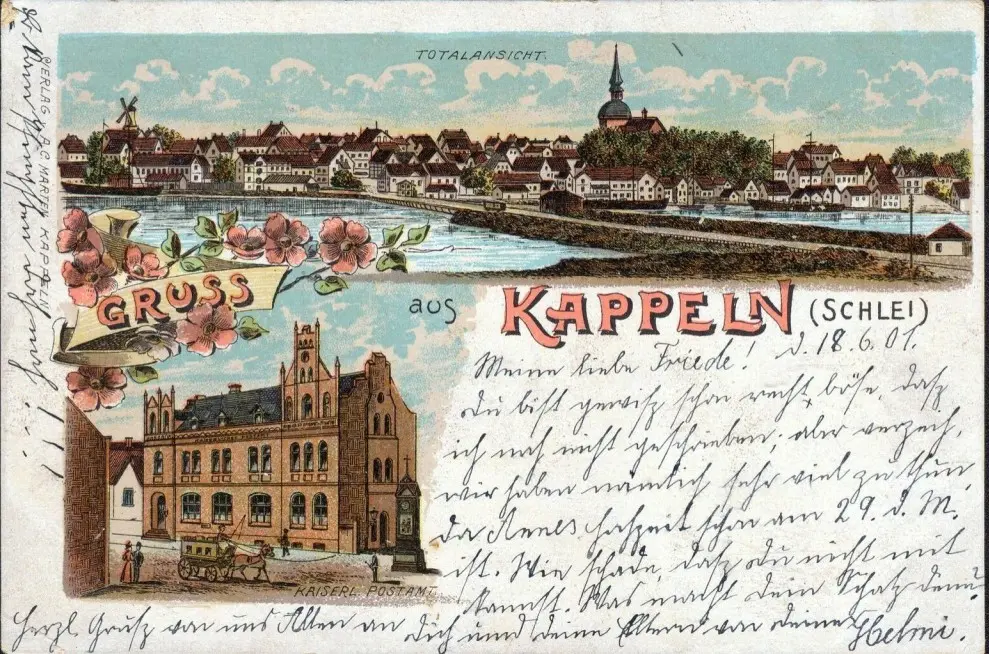 TOTALANSICHT.
GRUSS
aus KAPPELN (SCHLEI)
d. 18.6.01.
Meine liebe Friede!
Du bist gewiß schon recht böse, daß
ich noch nicht geschrieben; aber verzeih,
wir haben nämlich sehr viel zu thun,
da Annes Hochzeit schon am 29. d. M.
ist. Wie schade, daß Du nicht mit
kannst. Was macht Dein Schatz denn?
Herzl. Gruß von uns Allen an Dich und deine Eltern von deiner Helmi.
KAISERL. POSTAMT.
VERLAG V. AC. MARTEN KAPPELN